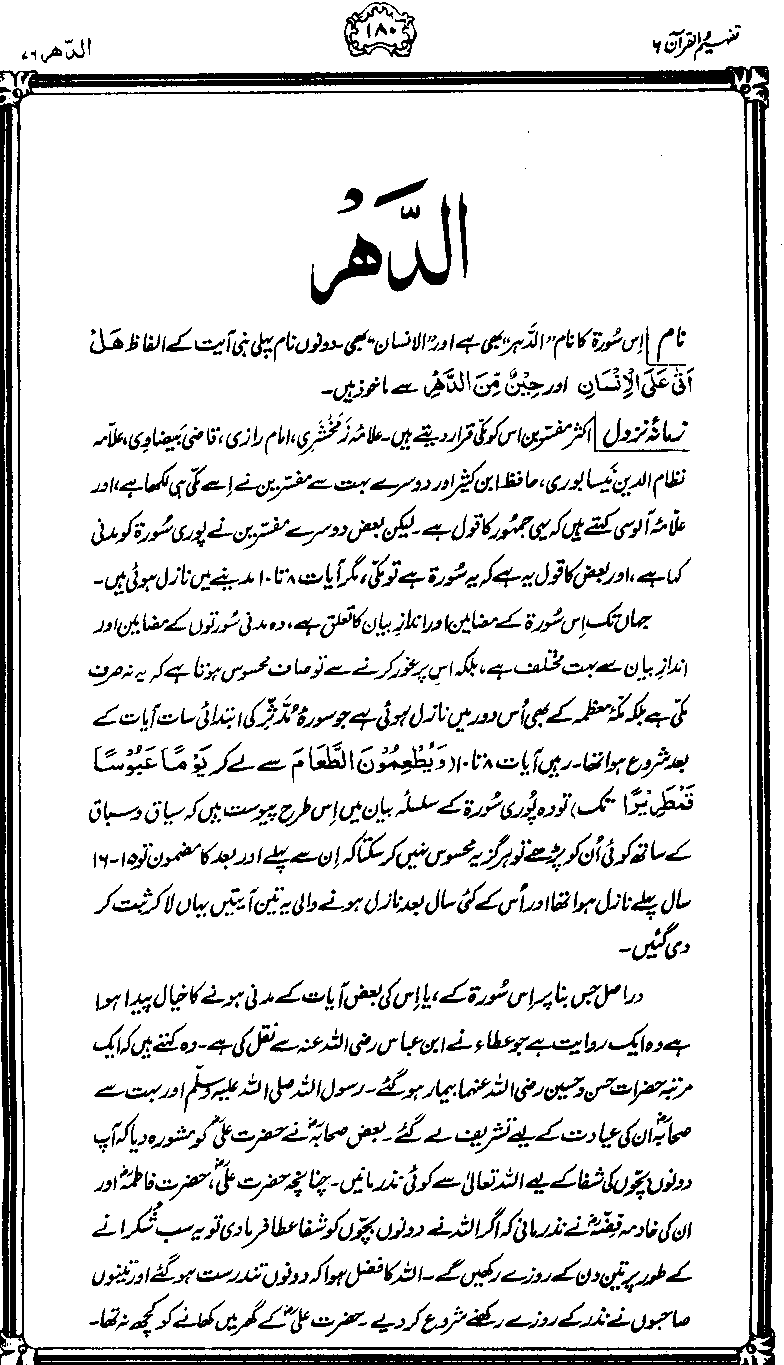 تفہیم القرآن ۶
۱۸۰
الدّھر ۷۶
الدَّھْر
نام اِس سُورۃ کا نام ”الدَّہر“ بھی ہے اور ”الانسان“ بھی۔ دونوں نام پہلی ہی آیت کے الفاظ ھَلْ
اَتٰی عَلَی الْاِنْسَانِ اور حِیْنٌ مِّنَ الدَّھْرِ سے ماخوذ ہیں۔
زمانۂ نزول اکثر مفسّرین اس کو مکّی قرار دیتے ہیں۔ علامہ زَمَخْشَری، امام رازی، قاضی بَیضاوی، علّامہ
نظام الدین نَیسابوری، حافظ ابن کثیر اور دوسرے بہت سے مفسّرین نے اِسے مکّی ہی لکھا ہے، اور
علّامہ آلوسی کہتے ہیں کہ یہی جمہور کا قول ہے۔ لیکن بعض دوسرے مفسّرین نے پوری سُورۃ کو مدنی
کہا ہے، اور بعض کا قول یہ ہے کہ یہ سُورۃ ہے تو مکّی، مگر آیات ۸ تا ۱۰ مدینے میں نازل ہوئی ہیں۔
جہاں تک اِس سُورۃ کے مضامین اور اندازِ بیان کا تعلق ہے، وہ مدنی سُورتوں کے مضامین اور
اندازِ بیان سے بہت مختلف ہے، بلکہ اِس پر غور کرنے سے تو صاف محسوس ہوتا ہے کہ یہ نہ صرف
مکّی ہے بلکہ مکّہ معظمہ کے بھی اُس دور میں نازل ہوئی ہے جو سورۂ مُدَّثِّر کی ابتدائی سات آیات کے
بعد شروع ہوا تھا۔ رہیں آیات ۸ تا ۱۰ (وَیُطْعِمُوْنَ الطَّعَامَ سے لے کر یَوْمًا عَبُوْسًا
قَمْطَرِیْرًا تک) تو وہ پُوری سُورۃ کے سلسلہ بیان میں اِس طرح پیوست ہیں کہ سیاق و سباق
کے ساتھ کوئی اُن کو پڑھے تو ہرگز یہ محسوس نہیں کر سکتا کہ اِن سے پہلے اور بعد کا مضمون تو ۱۵-۱۶
سال پہلے نازل ہوا تھا اور اُس کے کئی سال بعد نازل ہونے والی یہ تین آیتیں یہاں لا کر ثبت کر
دی گئیں۔
دراصل جس بنا پر اِس سُورۃ کے، یا اِس کی بعض آیات کے مدنی ہونے کا خیال پیدا ہوا
ہے وہ ایک روایت ہے جو عطاء نے ابن عباس رضی اللہ عنہ سے نقل کی ہے۔ وہ کہتے ہیں کہ ایک
مرتبہ حضرات حسن و حسین رضی اللہ عنہما بیمار ہو گئے۔ رسول اللہ صلی اللہ علیہ وسلّم اور بہت سے
صحابہؓ ان کی عیادت کے لیے تشریف لے گئے۔ بعض صحابہؓ نے حضرت علیؓ کو مشورہ دیا کہ آپ
دونوں بچّوں کی شفا کے لیے اللہ تعالیٰ سے کوئی نذر مانیں۔ چنانچہ حضرت علیؓ، حضرت فاطمہؓ اور
ان کی خادمہ فِضّہؓ نے نذر مانی کہ اگر اللہ نے دونوں بچّوں کو شفا عطا فرما دی تو یہ سب شکرانے
کے طور پر تین دن کے روزے رکھیں گے۔ اللہ کا فضل ہوا کہ دونوں تندرست ہو گئے اور تینوں
صاحبوں نے نذر کے روزے رکھنے شروع کر دیے۔ حضرت علیؓ کے گھر میں کھانے کو کچھ نہ تھا۔